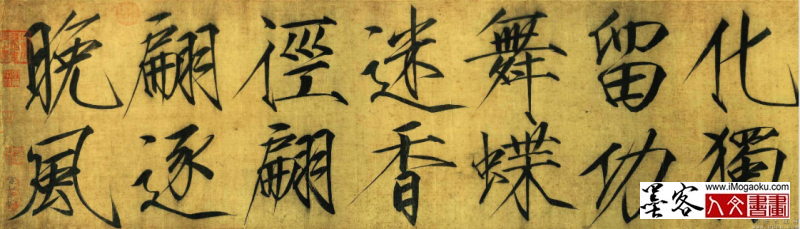 化獨
留功
舞蝶
迷香
徑翩
翩逐
晚風
墨客
www.iMogaoku.com
人文書畫